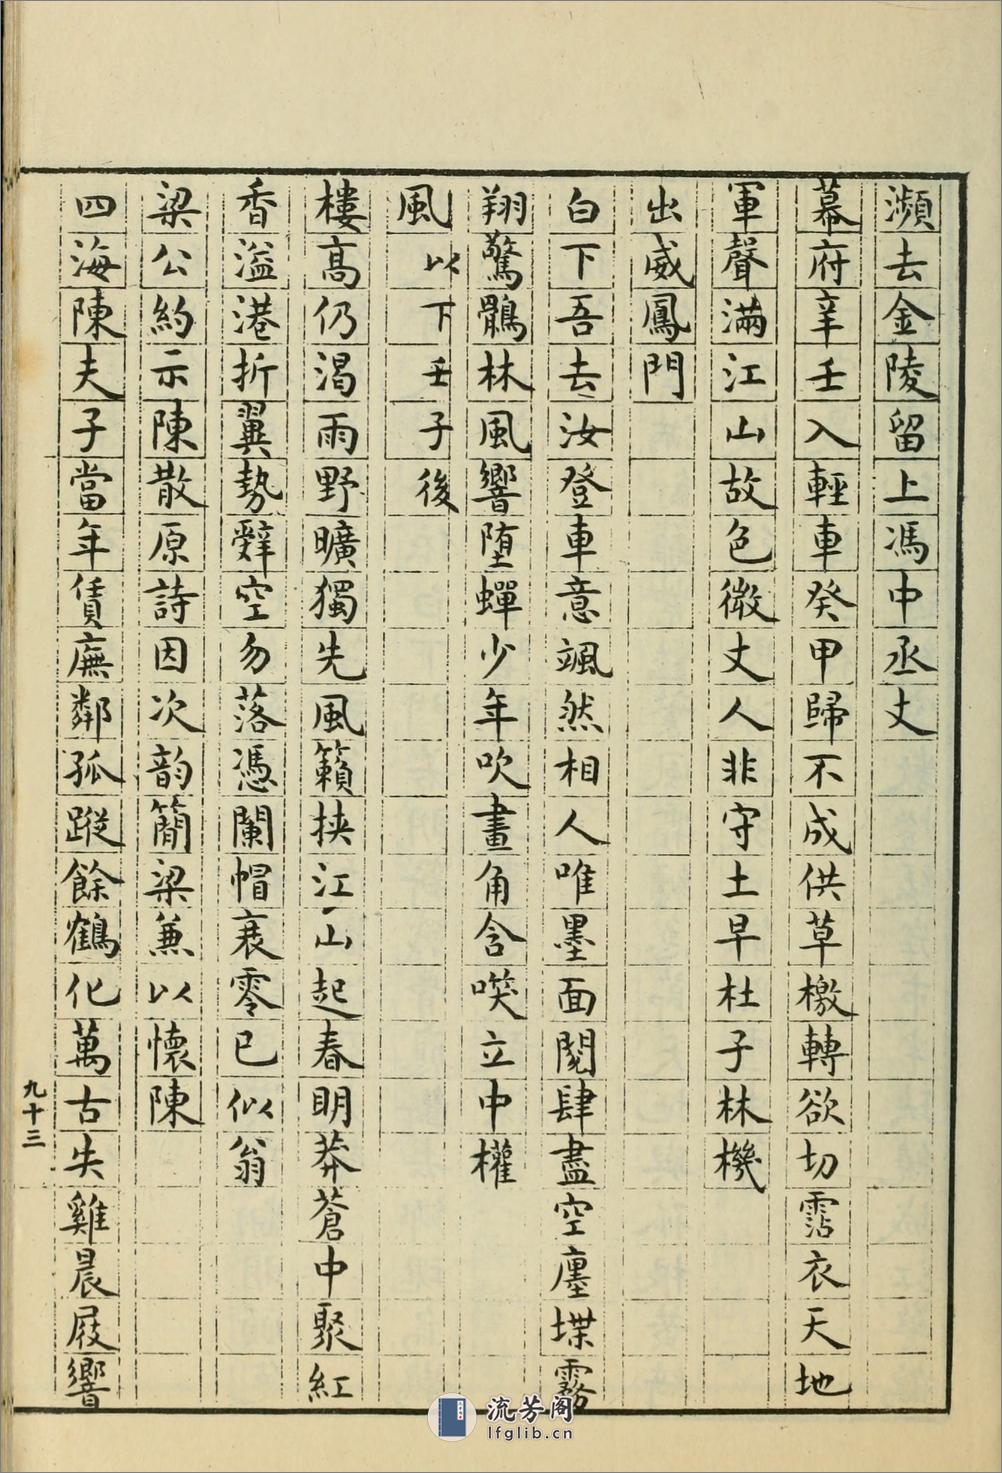 瀕去金陵留上馮中丞丈
幕府辛壬入輕車癸甲歸不成供草檄轉欲切霑衣天地
軍聲滿江山故色微丈人非守土早杜子林機
出威鳳門
白下吾去汝登車意颯然相人唯墨面閱肆盡空廛堞霧
翔驚鶻林風響墮蟬少年吹畫角含𥬇立中權
風以下壬子後
樓高仍渴雨野曠獨先風籟挾江山起春明莽蒼中聚紅
香溢港折翼勢辭空勿落憑闌帽衰零已似翁
梁公約示陳散原詩因次韵簡梁兼以懷陳
四海陳夫子當年賃廡鄰孤蹤餘鶴化萬古失雞晨屐響
九十三
流芳阁
lfglib.cn